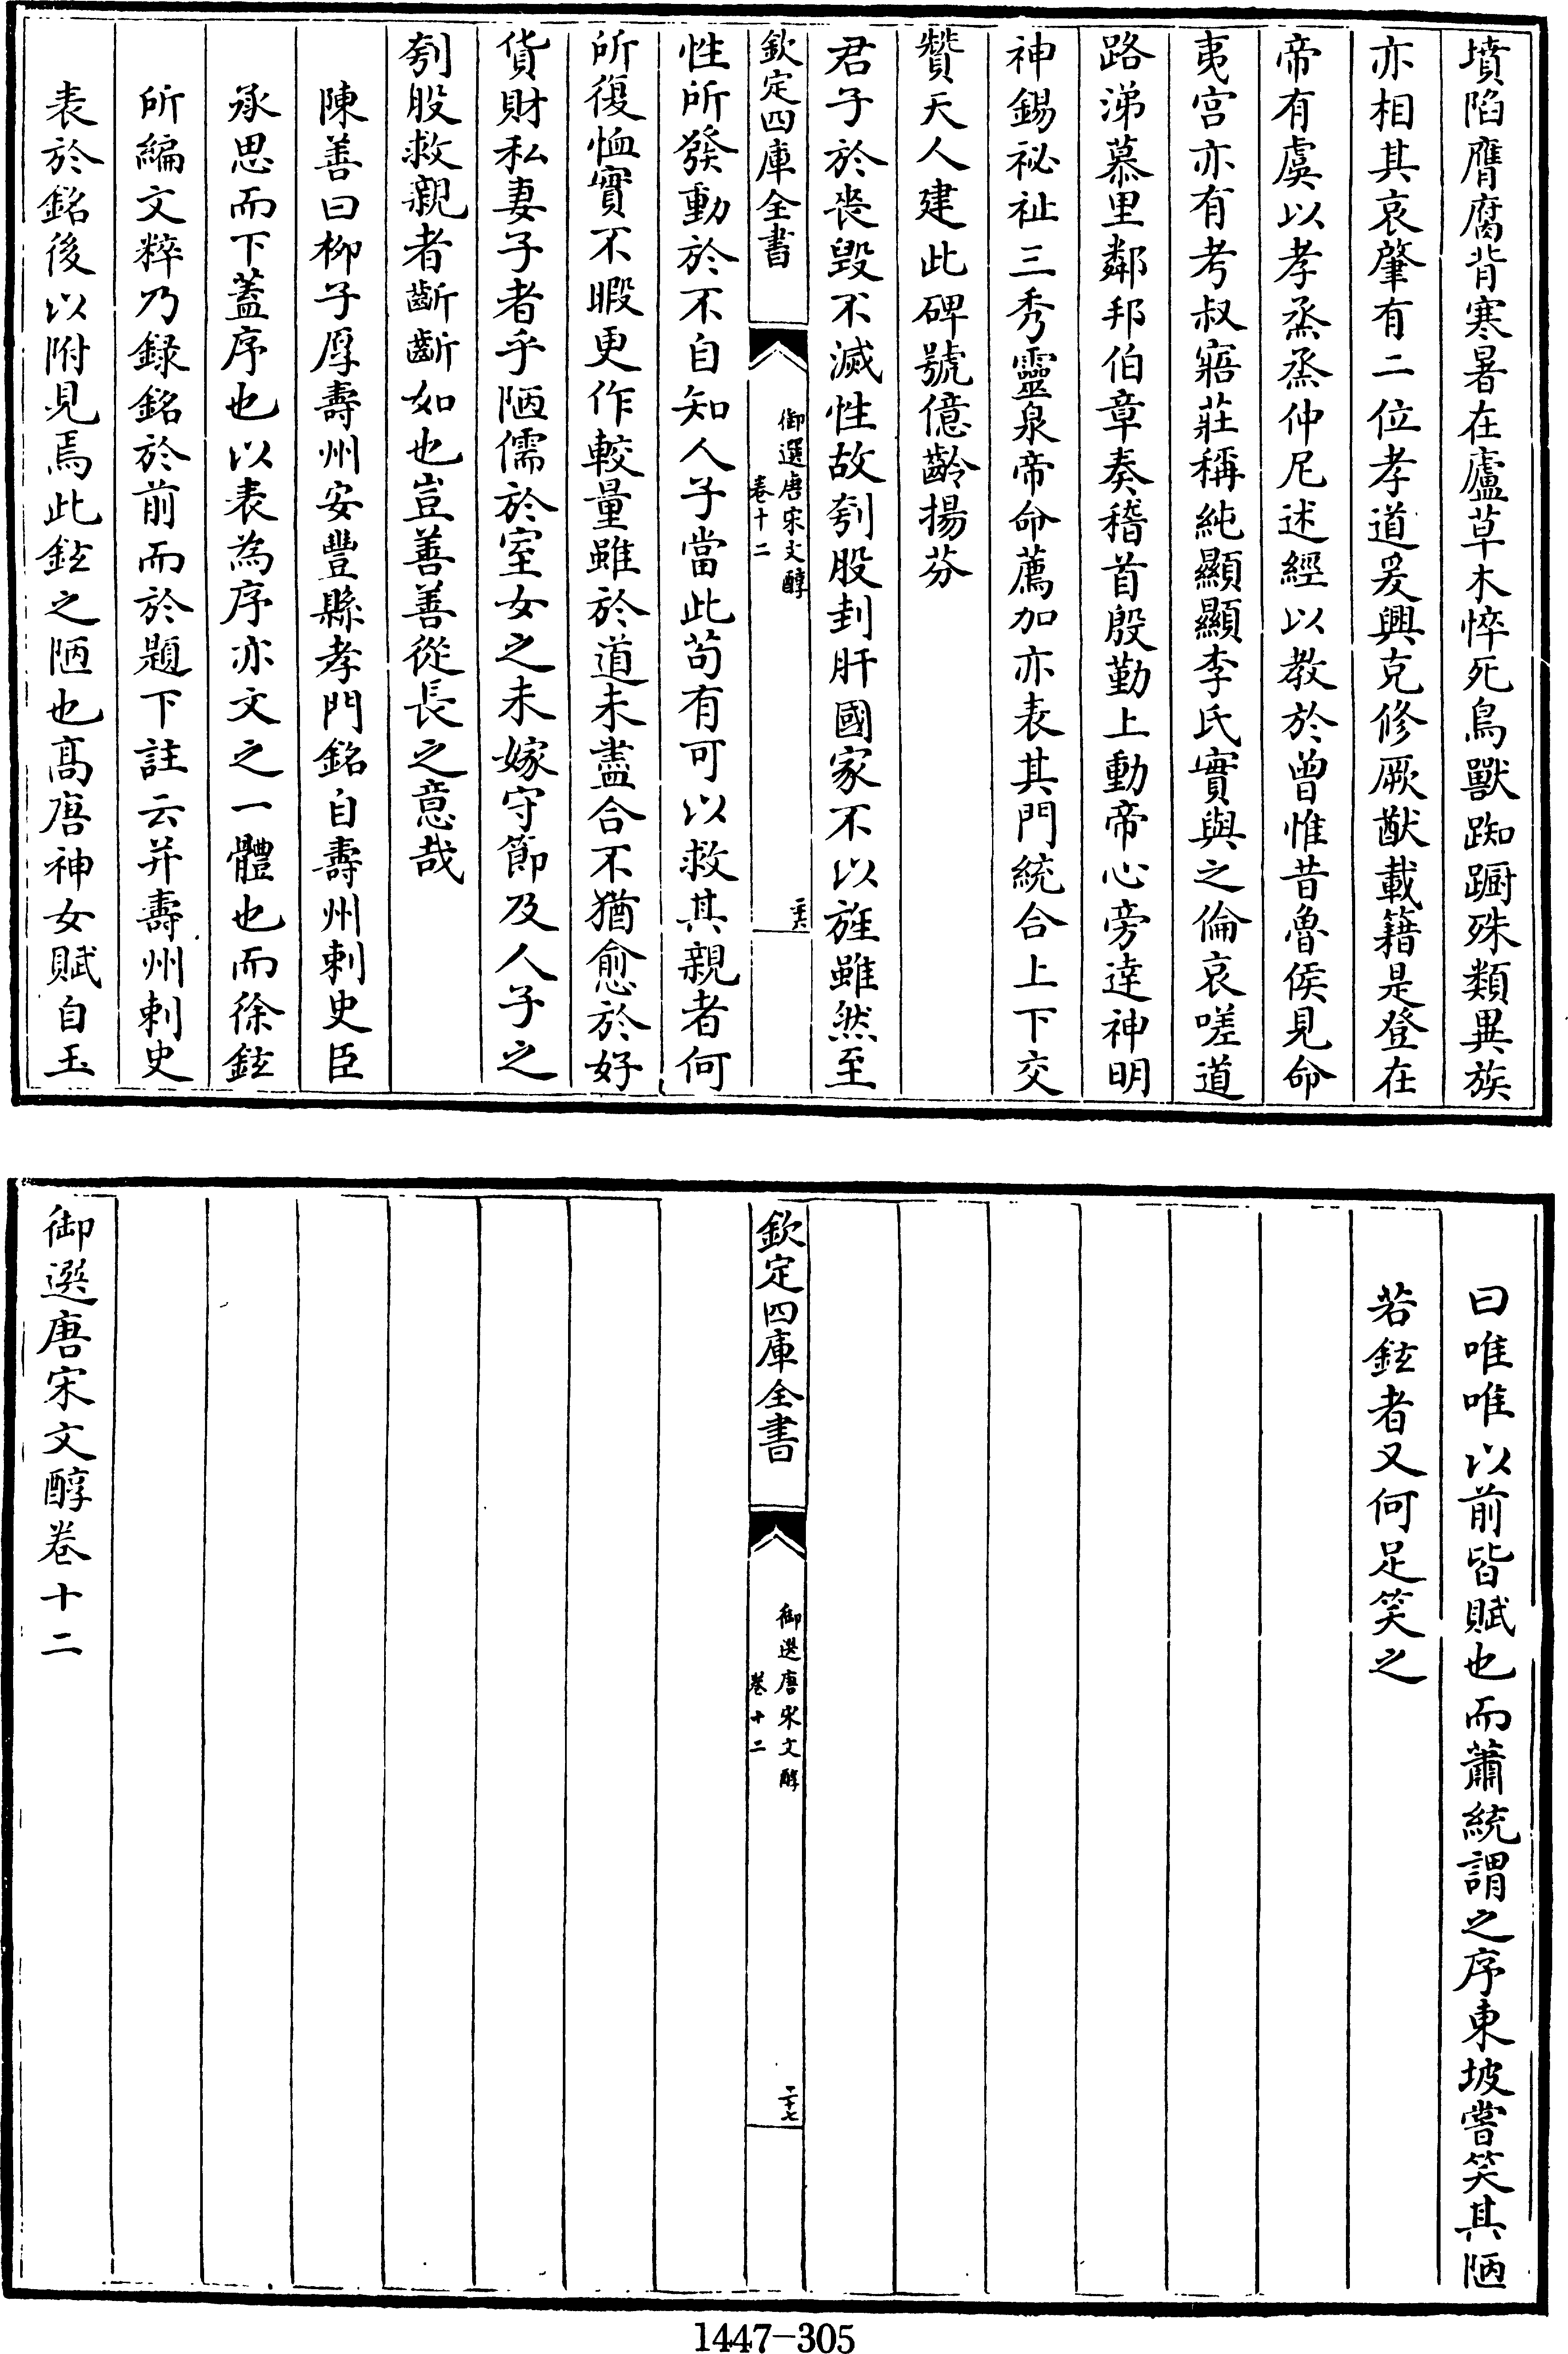 墳陷膺腐背寒暑在廬草木悴死鳥獸踟蹰殊類異族
亦相其哀肇有二位孝道爰興克修厥猷載籍是登在
帝有虞以孝烝烝仲尼述經以教於曾惟昔魯侯見命
夷宮亦有考叔寤莊稱純顯顯李氏實與之倫哀嗟道
路涕慕里鄰邦伯章奏稽首殷勤上動帝心旁達神明
神錫祕祉三秀靈泉帝命薦加亦表其門統合上下交
贊天人建此碑號億齡揚芬
君子於喪毀不滅性故刳股刲肝國家不以旌雖然至
欽定四庫全書
御選唐宋文醇
卷十二
二十六
性所發動於不自知人子當此苟有可以救其親者何
所復恤實不暇更作較量雖於道未盡合不猶愈於好
貨財私妻子者乎陋儒於室女之未嫁守節及人子之
刳股救親者齗齗如也豈善善從長之意哉
陳善曰柳子厚壽州安豐縣孝門銘自壽州刺史臣
承思而下蓋序也以表為序亦文之一體也而徐鉉
所編文粹乃録銘於前而於題下註云并壽州刺史
表於銘後以附見焉此鉉之陋也高唐神女賦自玉
曰唯唯以前皆賦也而蕭統謂之序東坡嘗笑其陋
若鉉者又何足笑之
欽定四庫全書
御選唐宋文醇
卷十二
二十七
御選唐宋文醇卷十二
1447-305